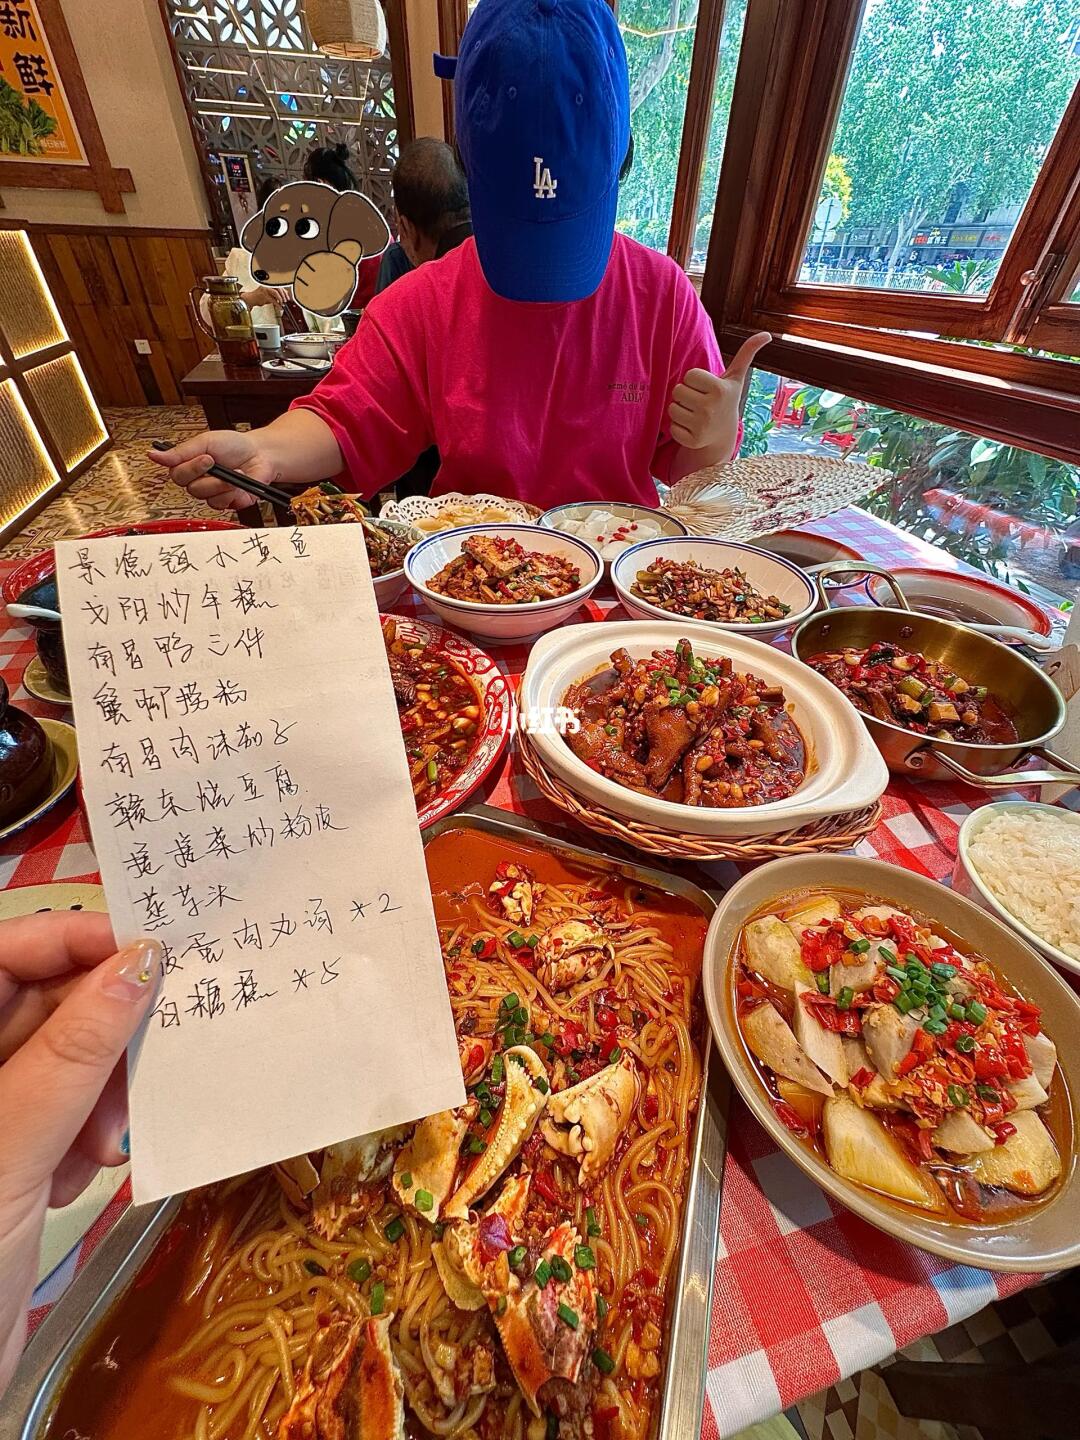 新鲜
LA
ADLV
小红书
景德镇小黄鱼
弋阳炒年糕
南昌鸭三件
蟹脚捞粉
南昌肉沫茄子
赣东烧豆腐
藠藠菜炒粉皮
蒸芋头
皮蛋肉丸汤 *2
白糖糕 *5